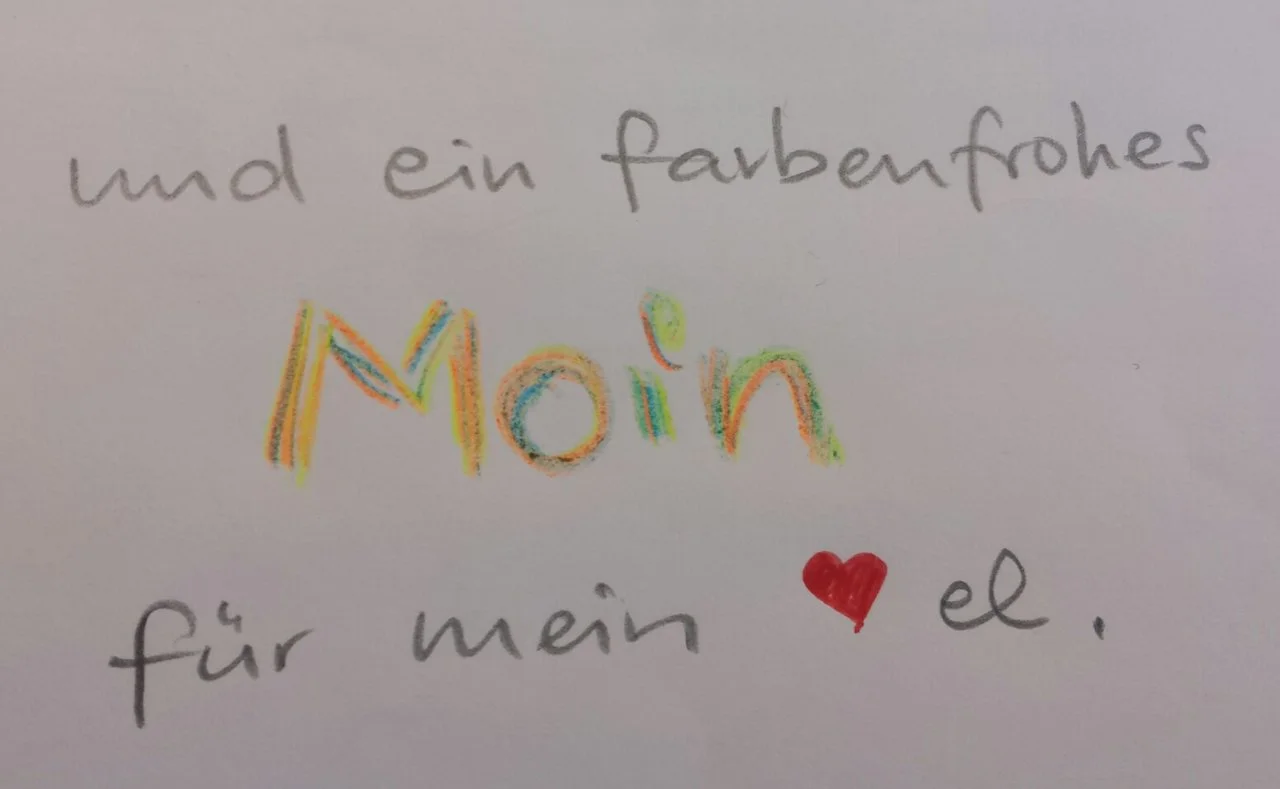 und ein farbenfrohes
Moin
für mein ♥ el.